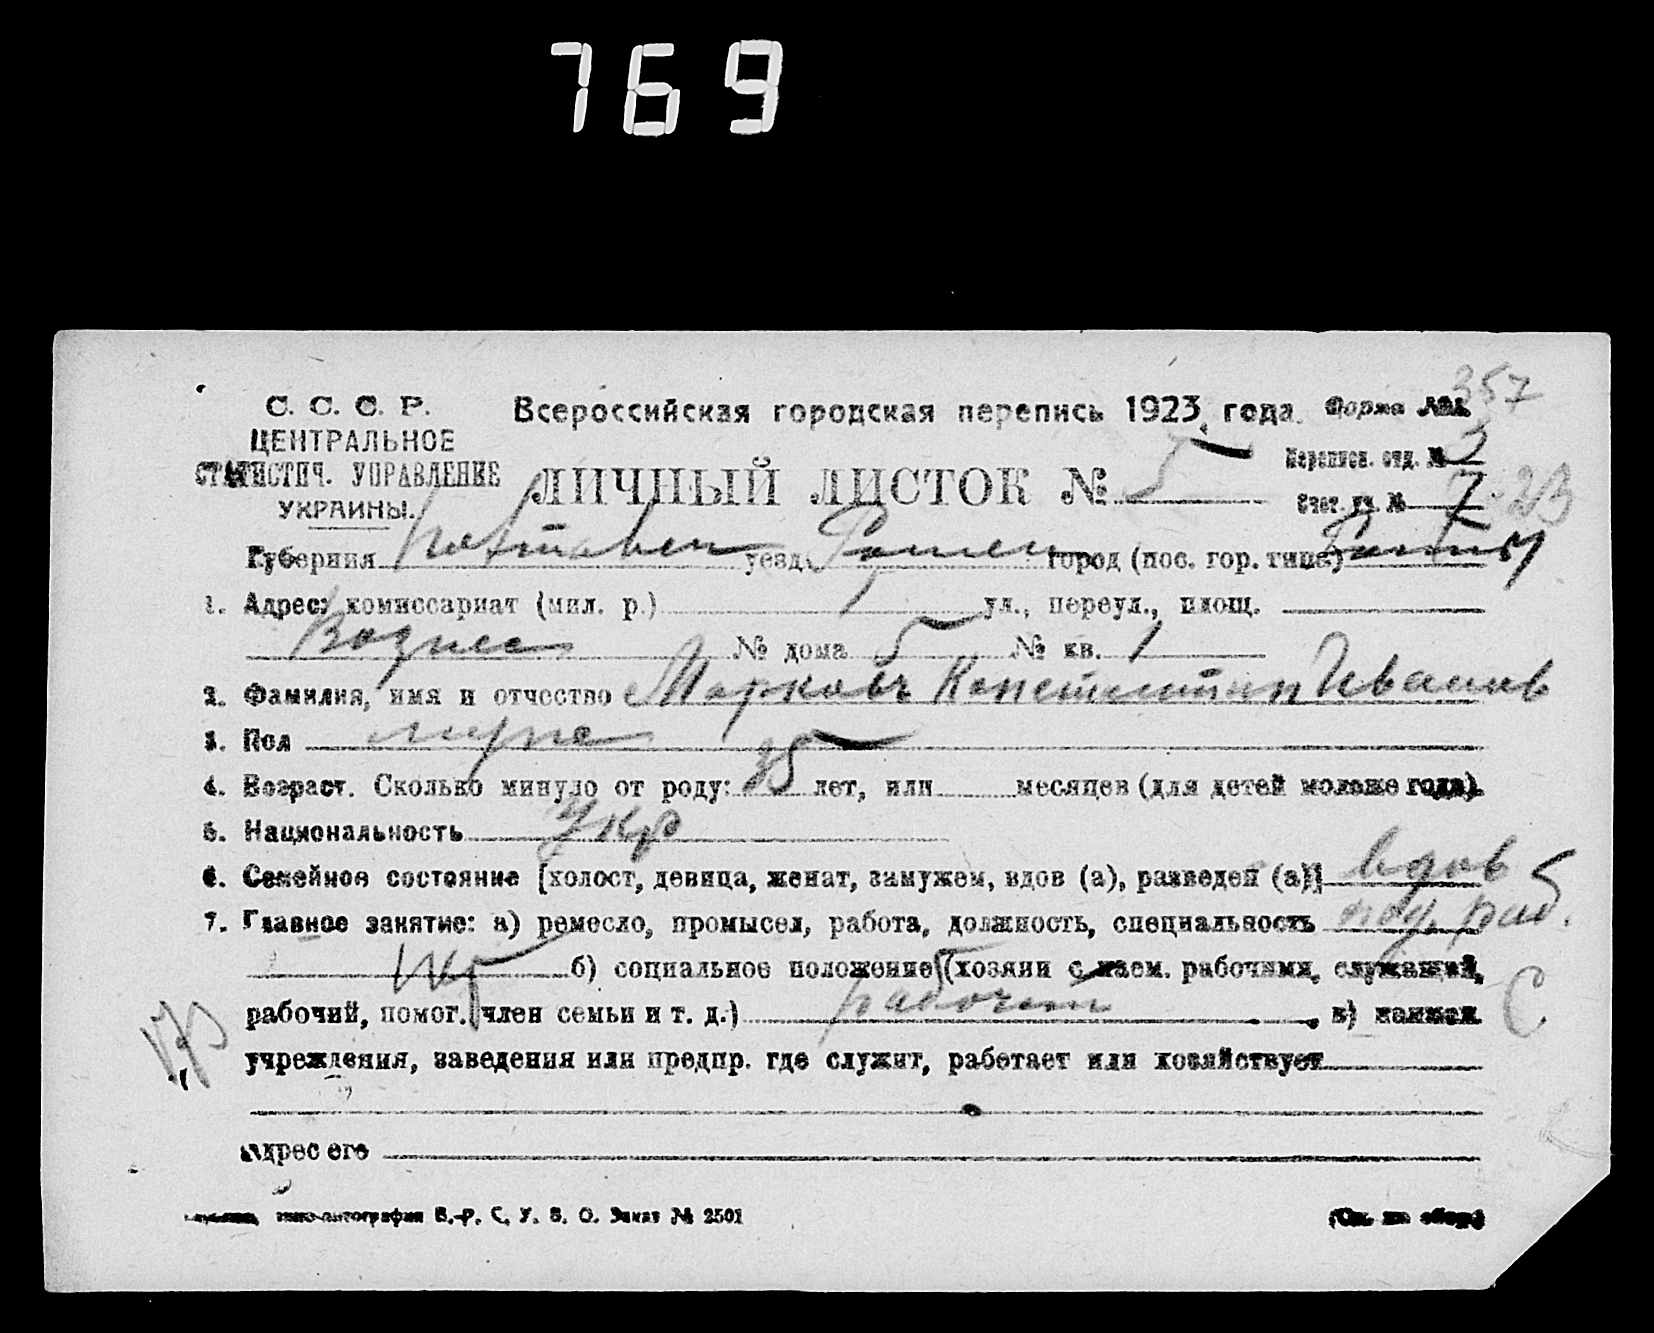 769
357
С. С. С. Р. Всероссийская городская перепись 1923 года. Форма №
ЦЕНТРАЛЬНОЕ
СТАТИСТИЧ. УПРАВЛЕНИЕ
УКРАИНЫ.
ЛИЧНЫЙ ЛИСТОК № 5
Переписн. отд. № 3
Счет. уч. № 7 23
Губерния Полтавск уезд Ромен город (пос. гор. типа) Ромны
1. Адрес: комиссариат (мил. р.) 1 ул., переул., площ.
Вознес № дома 5 № кв. 1
2. Фамилия, имя и отчество Марковъ Константин Иванов
3. Пол муже
4. Возраст. Сколько минуло от роду: 35 лет, или месяцев (для детей моложе года).
5. Национальность Укр
6. Семейное состояние [холост, девица, женат, замужем, вдов (а), разведен (а)] вдов
7. Главное занятие: а) ремесло, промысел, работа, должность, специальность
б) социальное положение (хозяин с наем. рабочими, служащий,
рабочий, помог. член семьи и т. д.) рабочий, в) наимен. С
учреждения, заведения или предпр. где служит, работает или хозяйствует
адрес его
типо-литография В.-Р. С. У. В. О. Заказ № 2501 (См. на обор.)